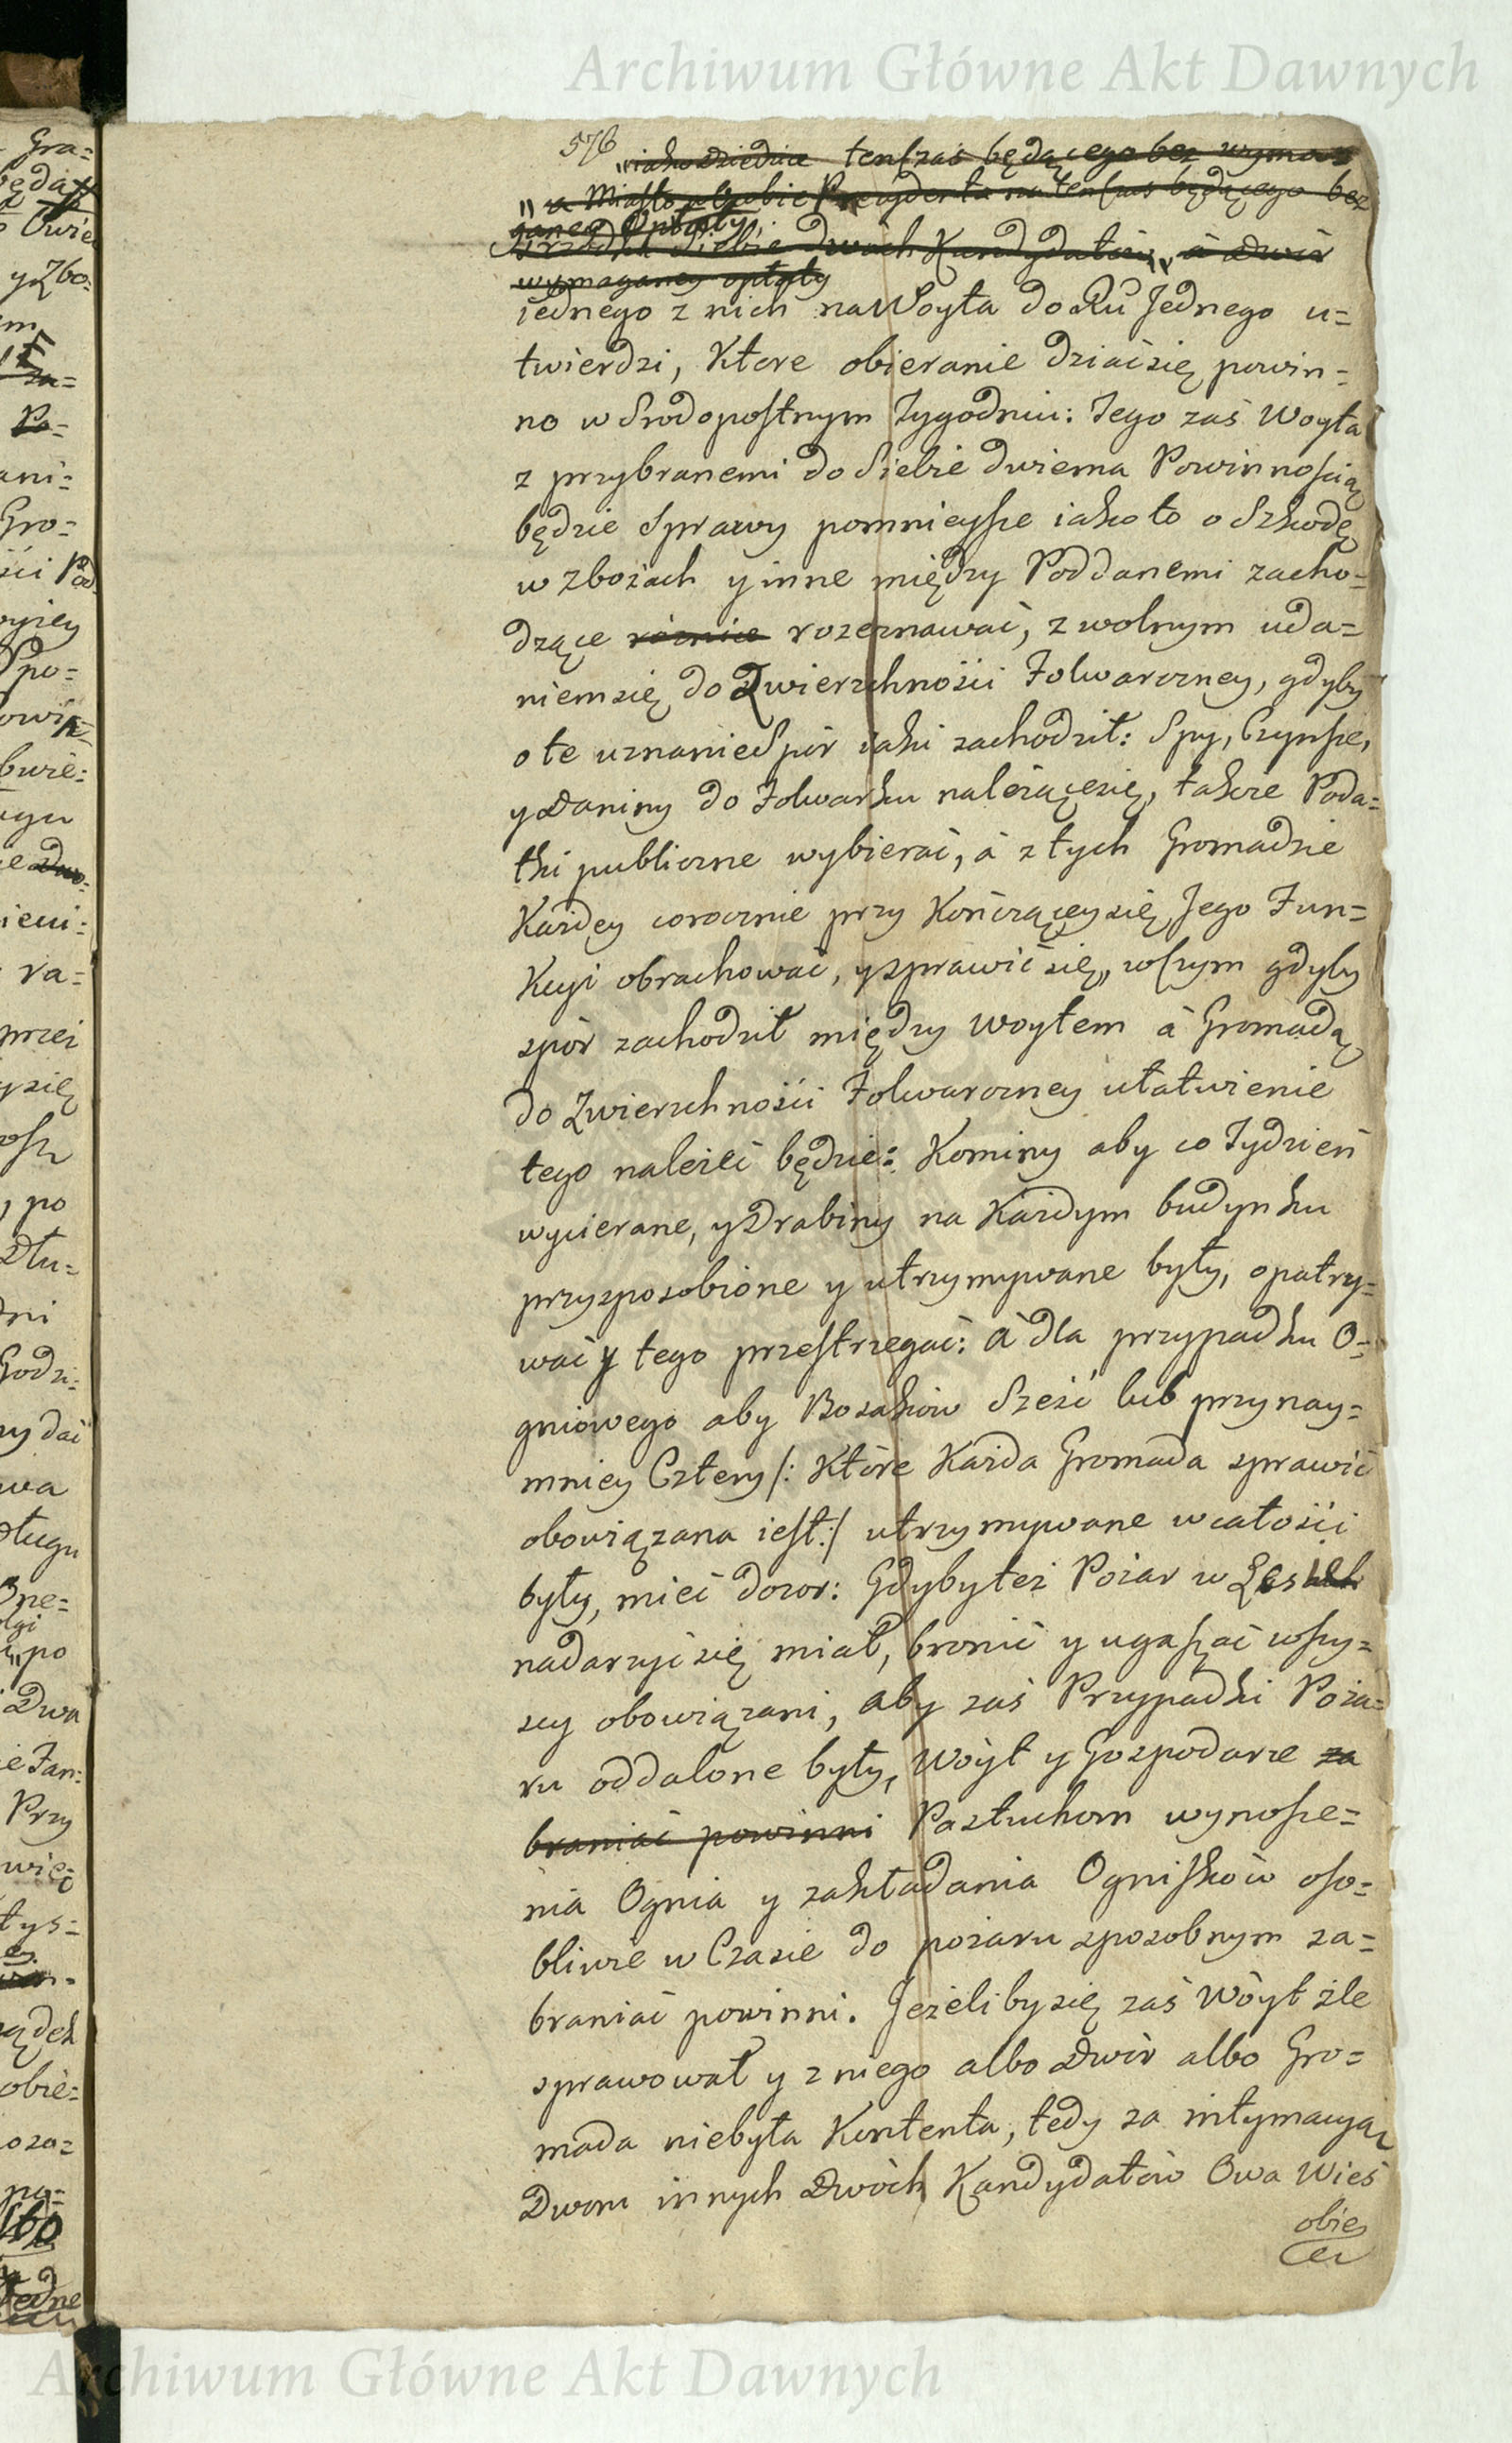 Archiwum Główne Akt Dawnych
576
„iako Dziedzica tenczas będącego bez wyma=
„ a Miasto w Osobie Prezydenta na ten czas będącego bez
ganey Opłaty,
Siebie Dwoch Kandydatow, à Dwór
wymaganey opłaty
iednego z nich na Woyta do Ru Jednego u=
twierdzi, Ktore obieranie dziać się powin=
no w Srodopostnym Tygodniu: Tego zaś Woyta
z przybranemi do Siebie dwiema Powinnością
będzie Sprawy pomnieysze iako to o Szkodę
w zbożach y inne między Poddanemi zacho=
dzące różnice rozeznawać, z wolnym uda=
niem się do Zwierzchności Folwarczney, gdyby
o te uznanie Spór iaki zachodził: Spy, Czynsze,
y Daniny do Folwarku należące się, także Poda=
tki publiczne wybierać, à z tych Gromadzie
Każdey corocznie przy Kończącey się Jego Fun=
kcyi obrachować, y sprawić się, w czym gdyby
spór zachodził między Woytem à Gromadą
do Zwierzchności Folwarczney ułatwienie
tego należeć będzie: Kominy aby co Tydzień
wycierane, y Drabiny na Każdym budynku
przysposobione y utrzymywane były, opatry=
wać y tego przestrzegać: à dla przypadku O=
gniowego aby Bosaków Sześć lub przynay=
mniey Cztery /: Które Każda Gromada sprawić
obowiązana iest :/ utrzymywane w całości
były, mieć dozor: Gdyby też Pożar w Lesie
nadarzyć się miał, bronić y ugaszać wszy=
scy obowiązani, aby zaś Przypadki Poża=
ru oddalone były, Woyt y Gospodarze za
braniać powinni Pastuchom wynosze=
nia Ognia y zakładania Ognisków oso=
bliwie w Czasie do pożaru sposobnym za=
braniać powinni. Jeżeliby się zaś Wóyt źle
sprawował y z niego albo Dwór albo Gro=
mada niebyła Kontenta, tedy za intymacyą
Dworu innych Dwóch Kandydatów Owa Wieś
obie
Archiwum Główne Akt Dawnych